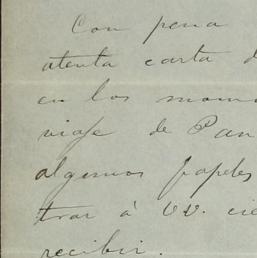 Con pena
atenta carta d
en los mom
viaje de Pan
algunos papeles
trar à VV. cie
recibir.